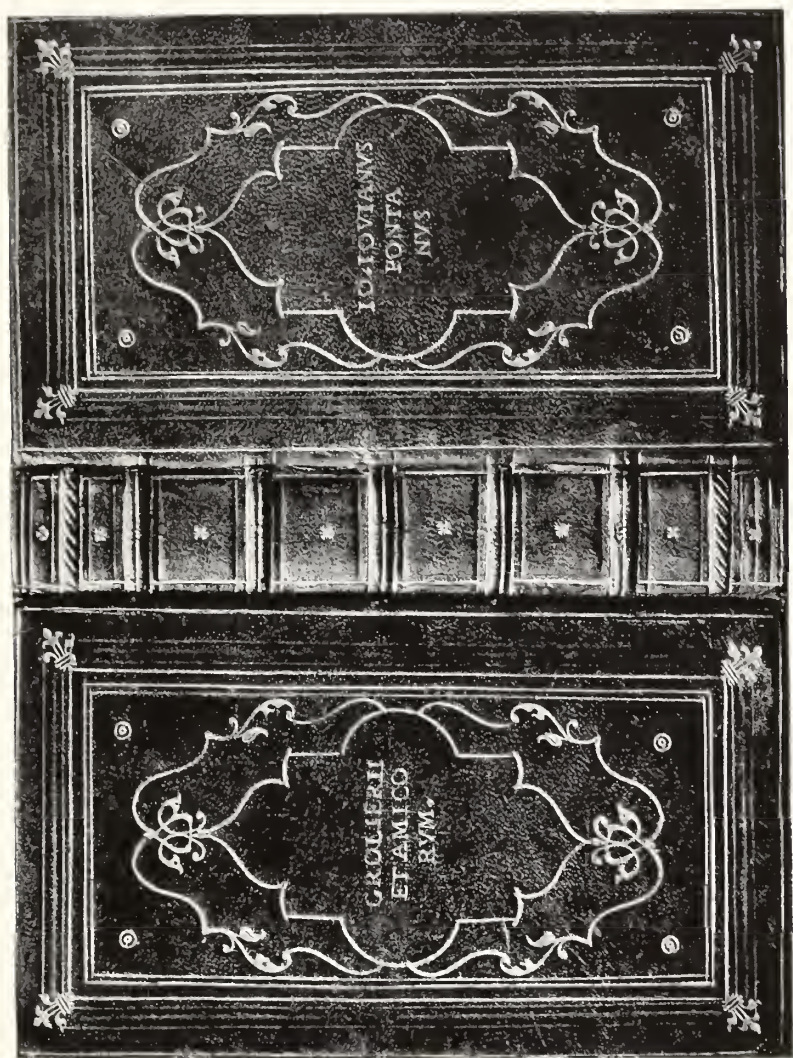 IO·IOVIANVS
PONTA
NVS
GROLIERII
ET AMICO
RVM.